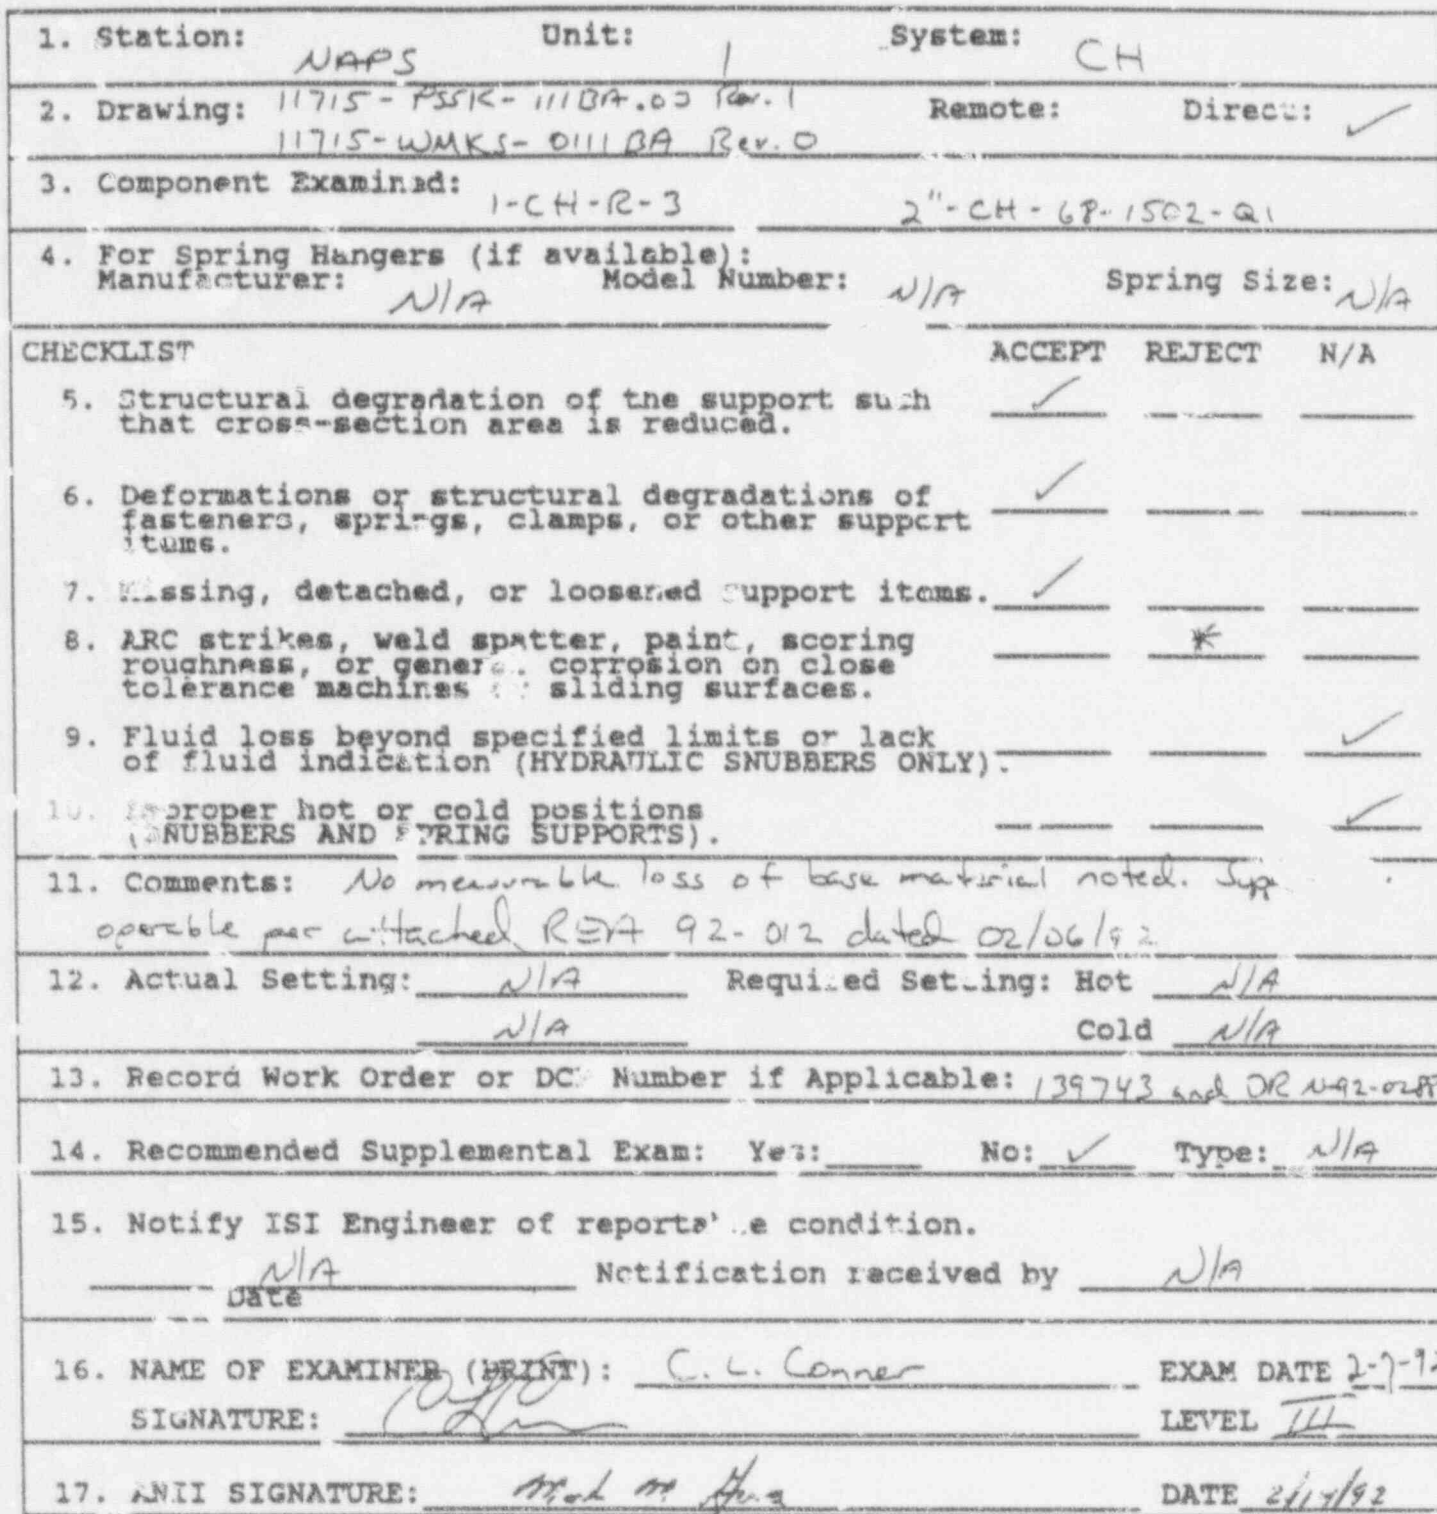 1. Station: NAPS Unit: 1 System: CH
2. Drawing: 11715-PSSK-111BA.03 Rev. 1 Remote: Direct: ✓
11715-WMKS-0111BA Rev. 0
3. Component Examined: 1-CH-R-3 2"-CH-68-1502-Q1
4. For Spring Hangers (if available):
Manufacturer: N/A Model Number: N/A Spring Size: N/A
CHECKLIST ACCEPT REJECT N/A
5. Structural degradation of the support such ✓
that cross-section area is reduced.
6. Deformations or structural degradations of ✓
fasteners, springs, clamps, or other support
items.
7. Missing, detached, or loosened support items. ✓
8. ARC strikes, weld spatter, paint, scoring *
roughness, or general corrosion on close
tolerance machines or sliding surfaces.
9. Fluid loss beyond specified limits or lack ✓
of fluid indication (HYDRAULIC SNUBBERS ONLY).
10. Improper hot or cold positions ✓
(SNUBBERS AND SPRING SUPPORTS).
11. Comments: No measurable loss of base material noted.
operable per attached REA 92-012 dated 02/06/92
12. Actual Setting: N/A Required Setting: Hot N/A
N/A Cold N/A
13. Record Work Order or DC Number if Applicable: 139743 and DR N-92-028
14. Recommended Supplemental Exam: Yes: No: ✓ Type: N/A
15. Notify ISI Engineer of reportable condition.
N/A Notification received by N/A
Date
16. NAME OF EXAMINER (PRINT): C. L. Conner EXAM DATE 2-7-92
SIGNATURE: LEVEL III
17. ANII SIGNATURE: DATE 2/17/92